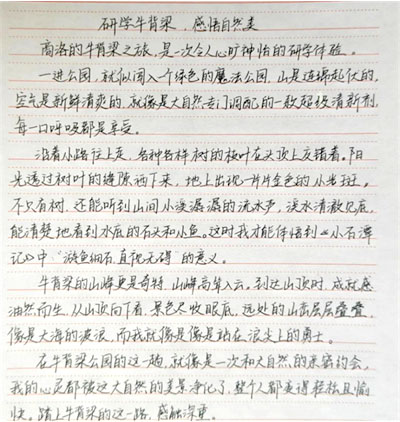 研学牛背梁，感悟自然美
商洛的牛背梁之旅，是一次令人心旷神怡的研学体验。
一进公园，就似闯入个绿色的魔法公园，山是连绵起伏的，
空气是新鲜清爽的，就像是大自然专门调配的一款超级清新剂，
每一口呼吸都是享受。
沿着小路往上走，各种各样树的枝叶在头顶上交错着。阳
光透过树叶的缝隙洒下来，地上出现一片片金色的小光斑。
不只有树，还能听到山间小溪潺潺的流水声，溪水清澈见底，
能清楚地看到水底的石头和小鱼。这时我才能体悟到《小石潭
记》中“游鱼细石，直视无碍”的意义。
牛背梁的山峰更是奇特，山峰高耸入云。到达山顶时，成就感
油然而生，从山顶向下看，景色尽收眼底，远处的山峦层层叠叠，
像是大海的波浪，而我就像是像是站在浪尖上的勇士。
在牛背梁公园的这一趟，就像是一次和大自然的亲密约会，
我的心灵都被这大自然的美景净化了，整个人都变得轻松且愉
快。踏上牛背梁的这一路，感触深重。